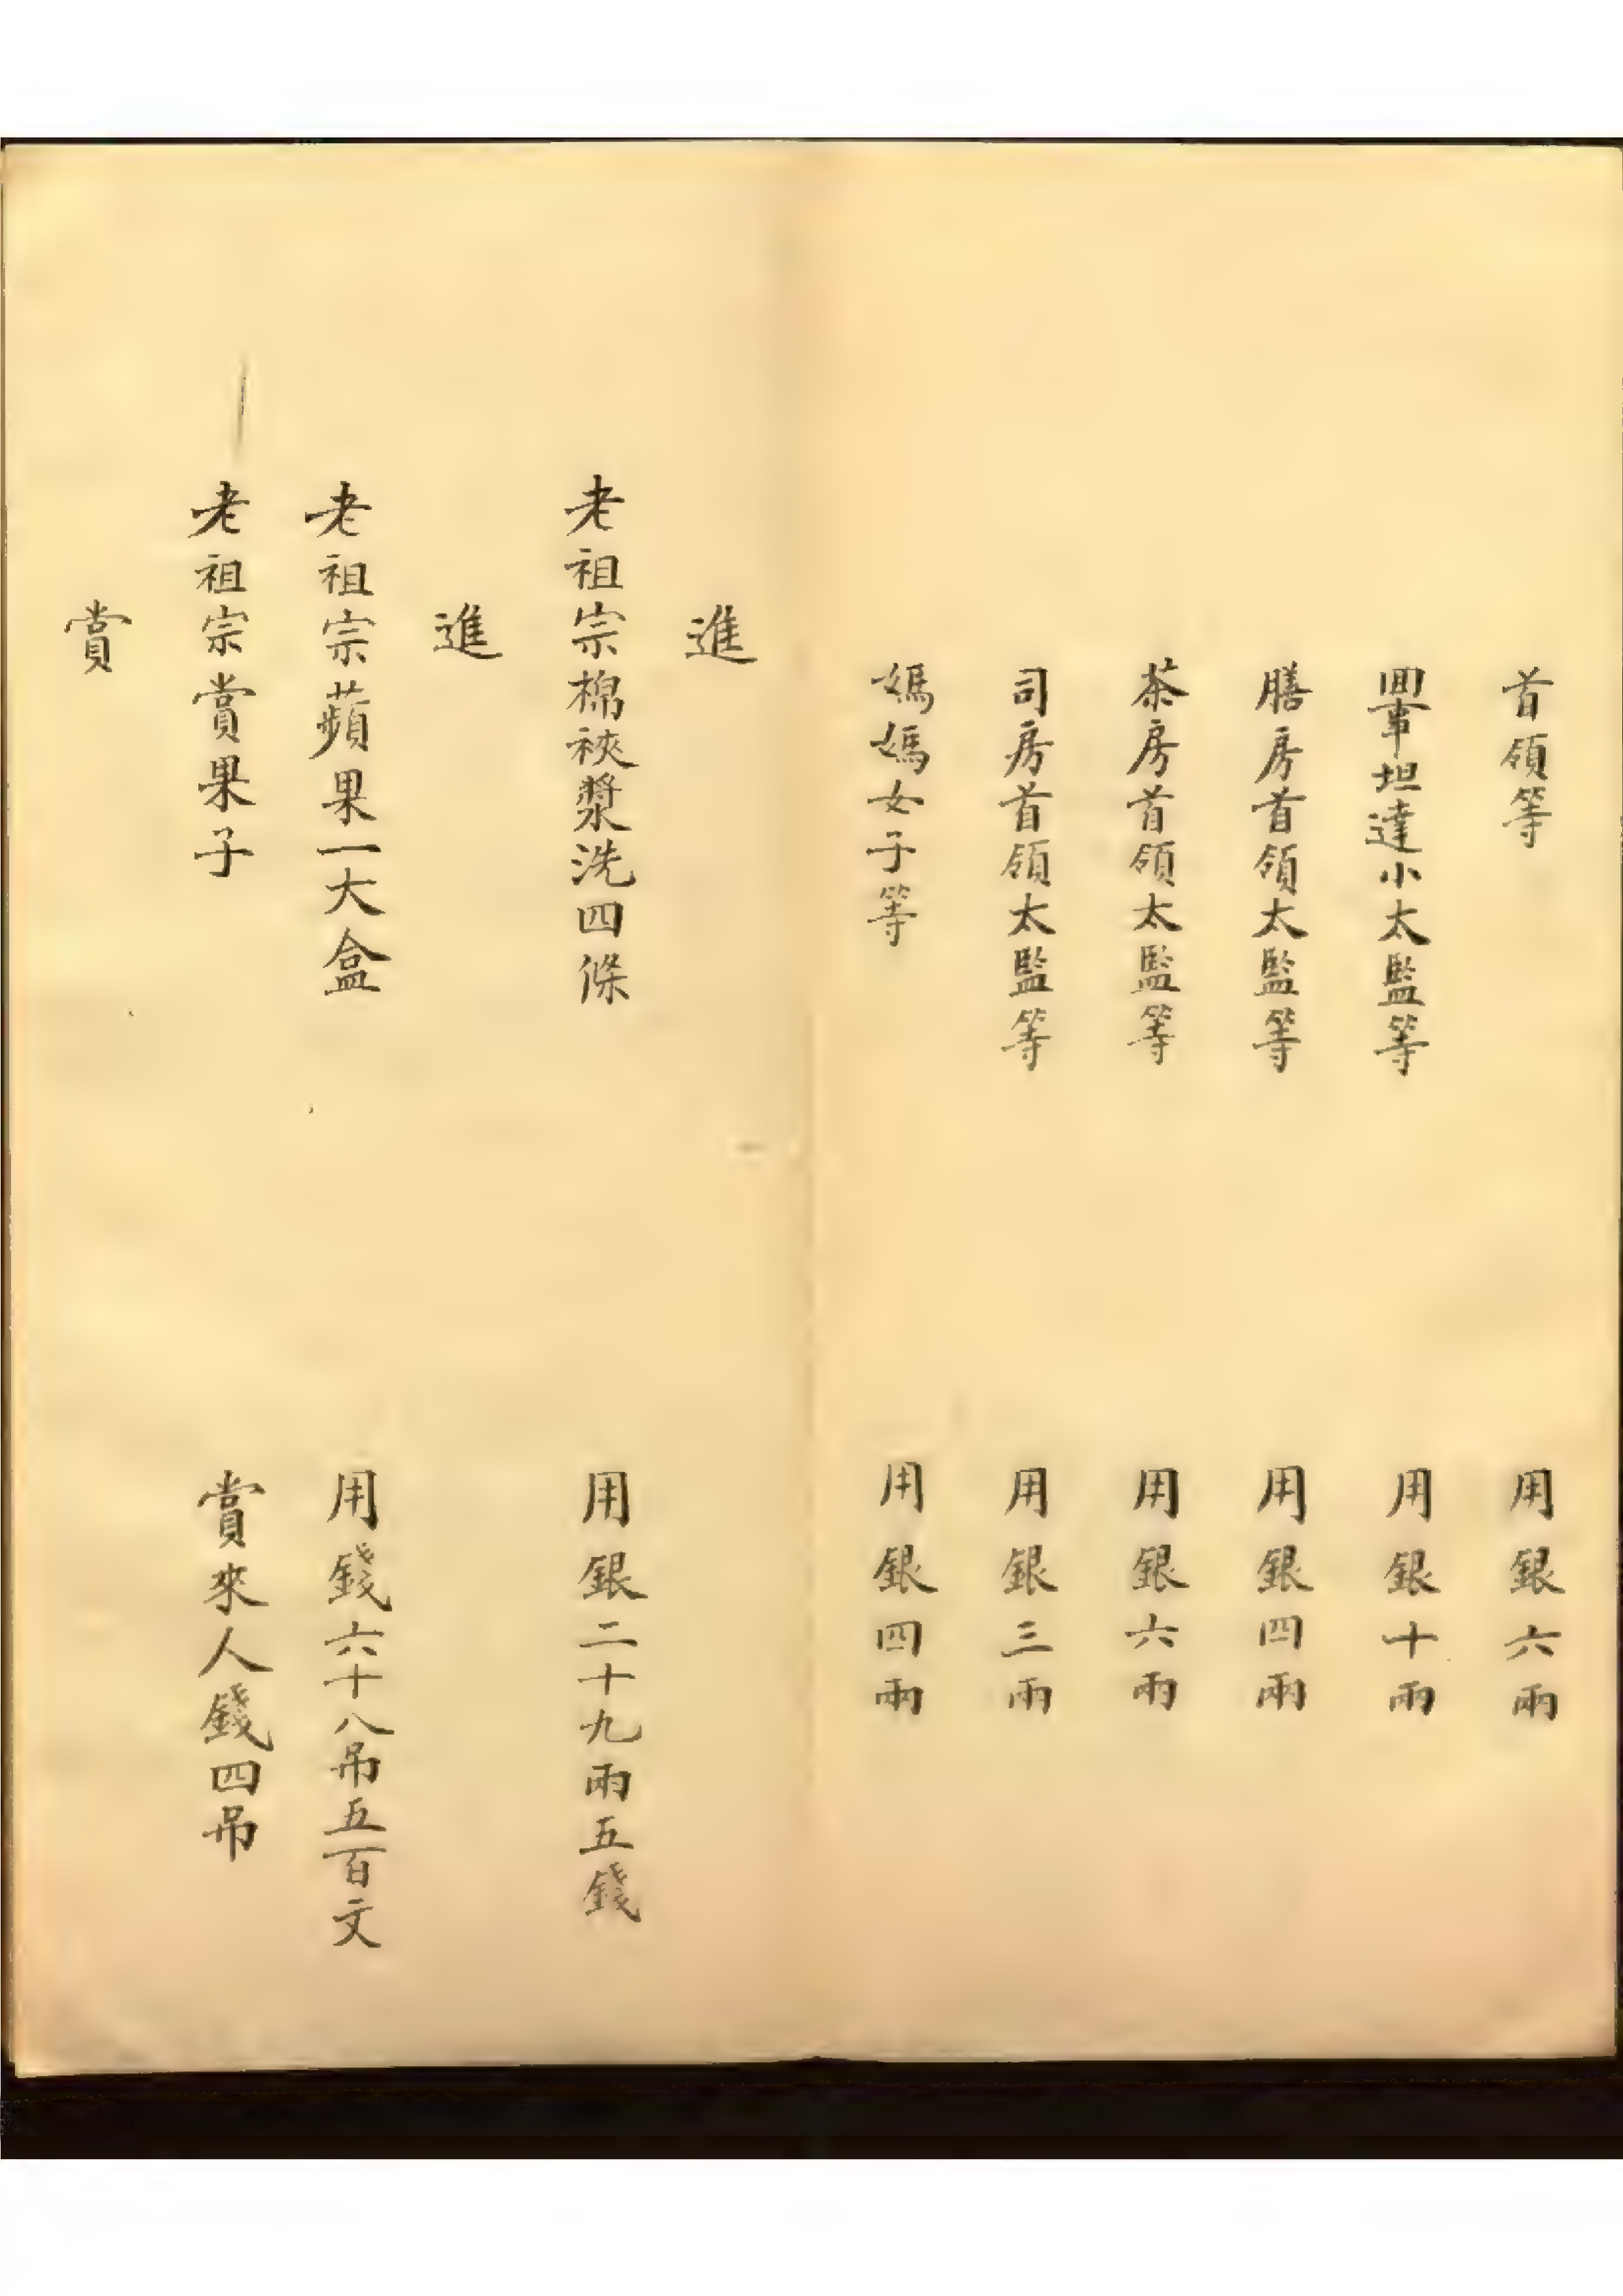 首領等 用銀六兩
囬事坦達小太監等 用銀十兩
膳房首領太監等 用銀四兩
茶房首領太監等 用銀六兩
司房首領太監等 用銀三兩
媽媽女子等 用銀四兩
進
老祖宗棉裌漿洗四條 用銀二十九兩五錢
進
老祖宗蘋果一大盒 用錢六十八吊五百文
老祖宗賞果子 賞來人錢四吊
賞